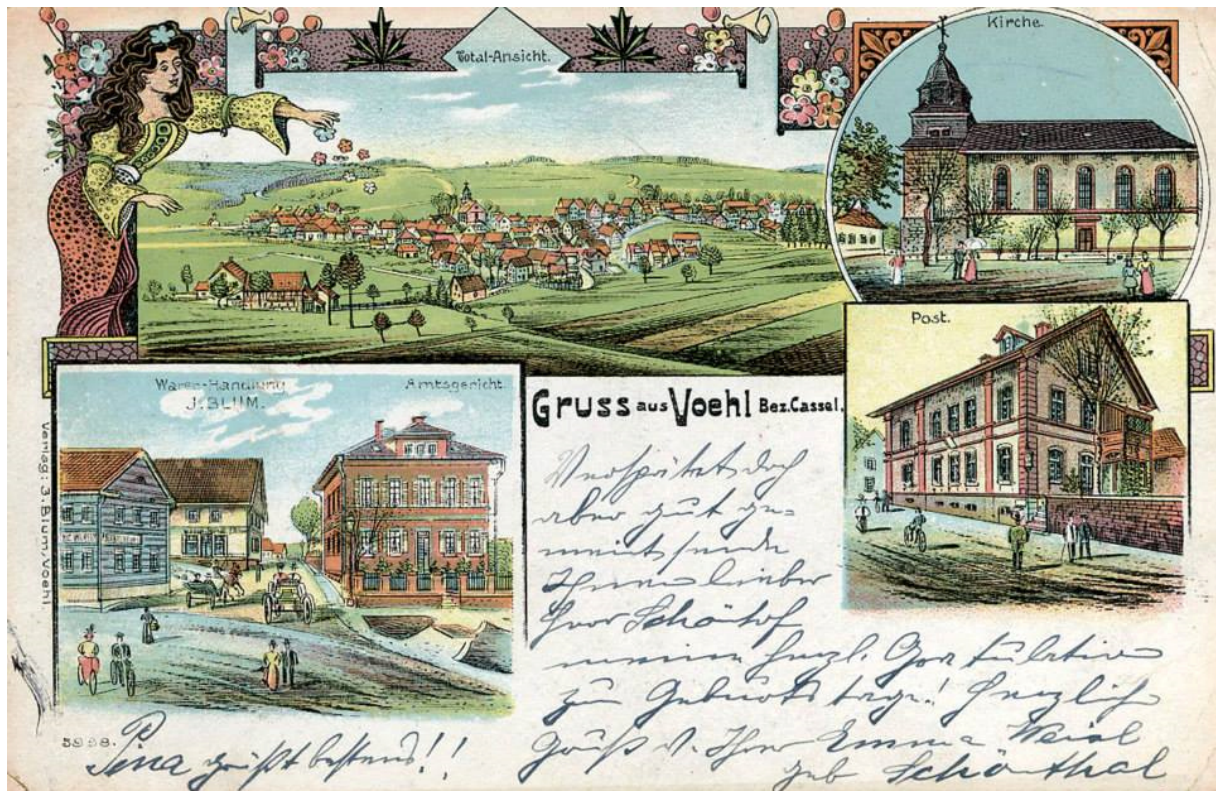 Total-Ansicht.
Kirche.
Post.
Waren-Handlung
J. BLUM.
Amtsgericht.
Gruss aus Voehl Bez. Cassel.
Verlag: J. Blum, Voehl.
5998.
Verspätet doch
aber gut ge-
meint sende
Ihnen lieber
Herr Schönhof
meine herzl. Gratulation
zu Geburtstage! Herzlich
Grüßt S. Ihre Emma Weisl
geb Schönthal
Pina grüßt bestens!!